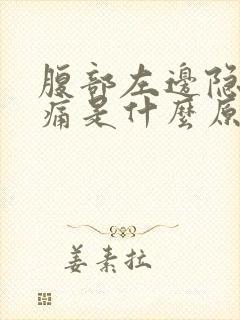 腹部左邊隐
痛是什麼原
姜素拉